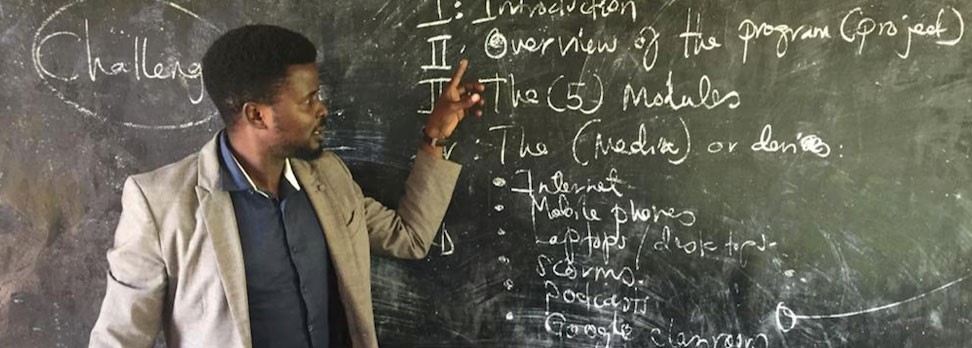 Challeng
I: Introduction
II: Overview of the program (project)
The (5) Modules
The (Media) or
• Internet
• Mobile phones
• Laptops/desktops
• Scorms.
• Podcasts
• Google classroom